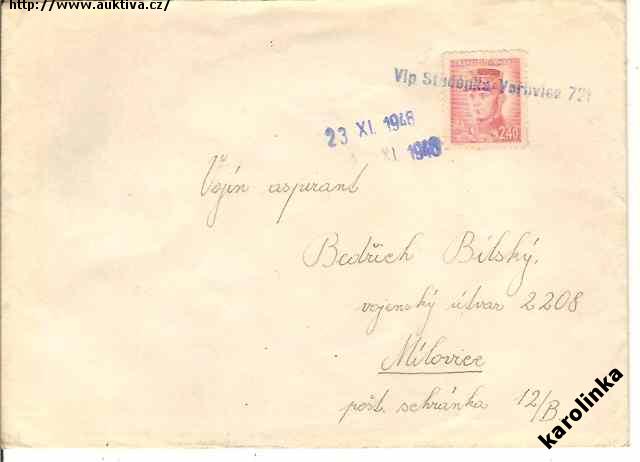 http://www.auktiva.cz/
Vlp Verovice 721
23 XI. 1948
XI. 1948
2.40
Vojín aspirant
Bedřich Bílský.
vojenský útvar 2208
Milovice
pošt. schránka 12/B.
karolinka